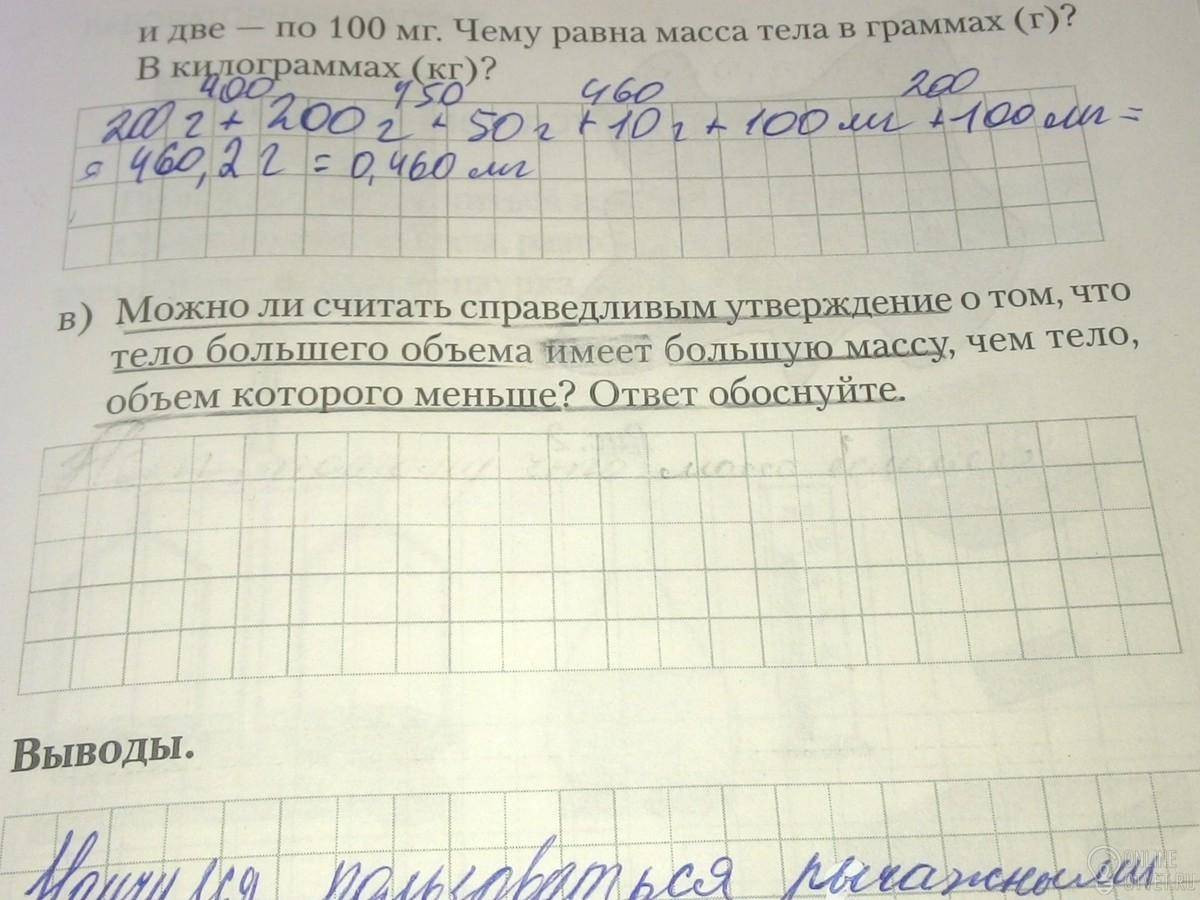 и две — по 100 мг. Чему равна масса тела в граммах (г)?
В килограммах (кг)?
400 450 460 200
200 г + 200 г + 50 г + 10 г + 100 мг + 100 мг =
= 460,2 г = 0,460 мг
в) Можно ли считать справедливым утверждение о том, что
тело большего объема имеет большую массу, чем тело,
объем которого меньше? Ответ обоснуйте.
потому что
Выводы.
Научился пользоваться рычажными
ONLINE
OTVET.RU